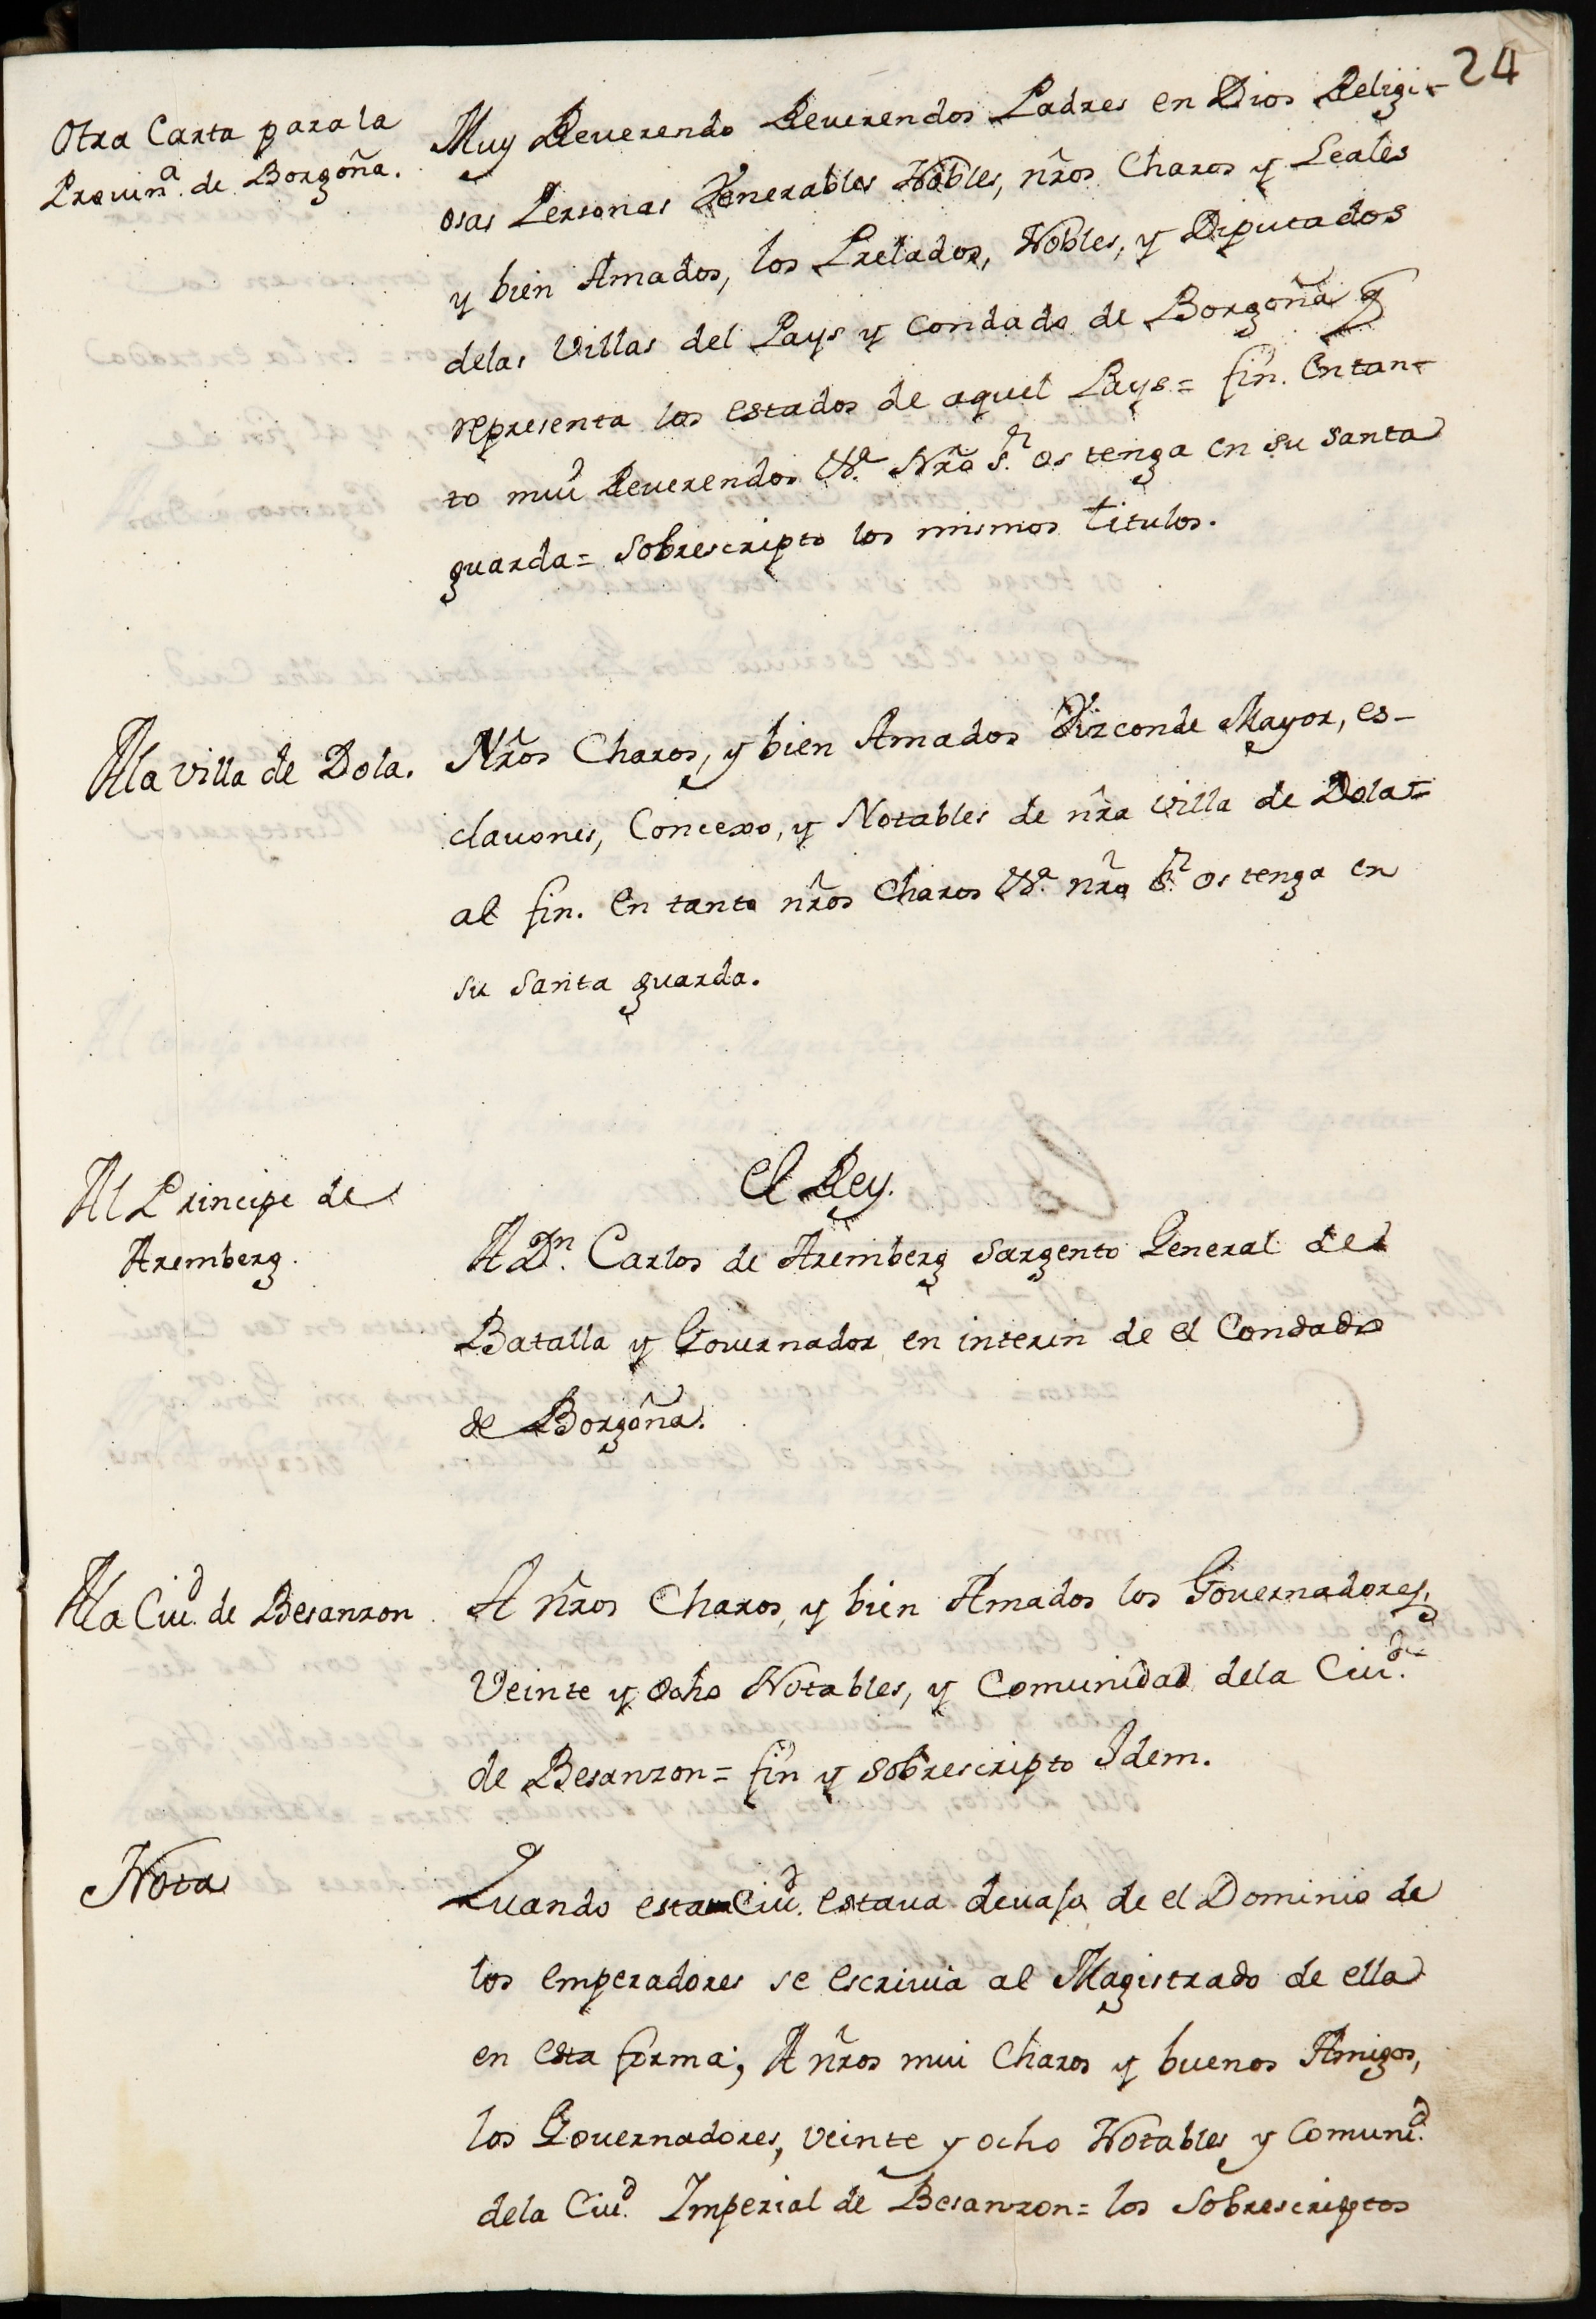 24
Otra Carta para la
Provin.ª de Borgoña.
Muy Reverendo Reverendos Padres en Dios Religi-
osas Personas Venerables Nobles, nr̃os Charos y Leales
y bien Amados, los Prelados, Nobles, y Diputados
delas Villas del Pays y Condado de Borgoña q̃
representa los estados de aquel Pays = fin. En tan-
to mui Reverendos &.ª Nrõ S.r os tenga en su santa
guarda = Sobrescripto los mismos titulos.
A la villa de Dola.
Nr̃os Charos, y bien Amados Vizconde Mayor, es-
clavones, Concexo, y Notables de nr̃a villa de Dola =
al fin. En tanto nr̃os Charos &.ª nrõ S.r os tenga en
su santa guarda.
Al Principe de
Aremberg.
El Rey.
A D.n Carlos de Aremberg Sargento General de
Batalla y Governador en interin de el Condado
de Borgoña.
A la Ciu.d de Besanzon
A nr̃os Charos, y bien Amados los Governadores,
Veinte y ocho Notables, y Comunidad dela Ciu.d
de Besanzon = fin y sobrescripto Idem.
Nota
Quando esta Ciu.d estava devajo de el Dominio de
los Emperadores se escrivia al Magistrado de ella
en esta forma; A nr̃os mui Charos y buenos Amigos,
los Governadores, veinte y ocho Notables y Comuni.d
dela Ciu.d Imperial de Besanzon = los Sobrescriptos